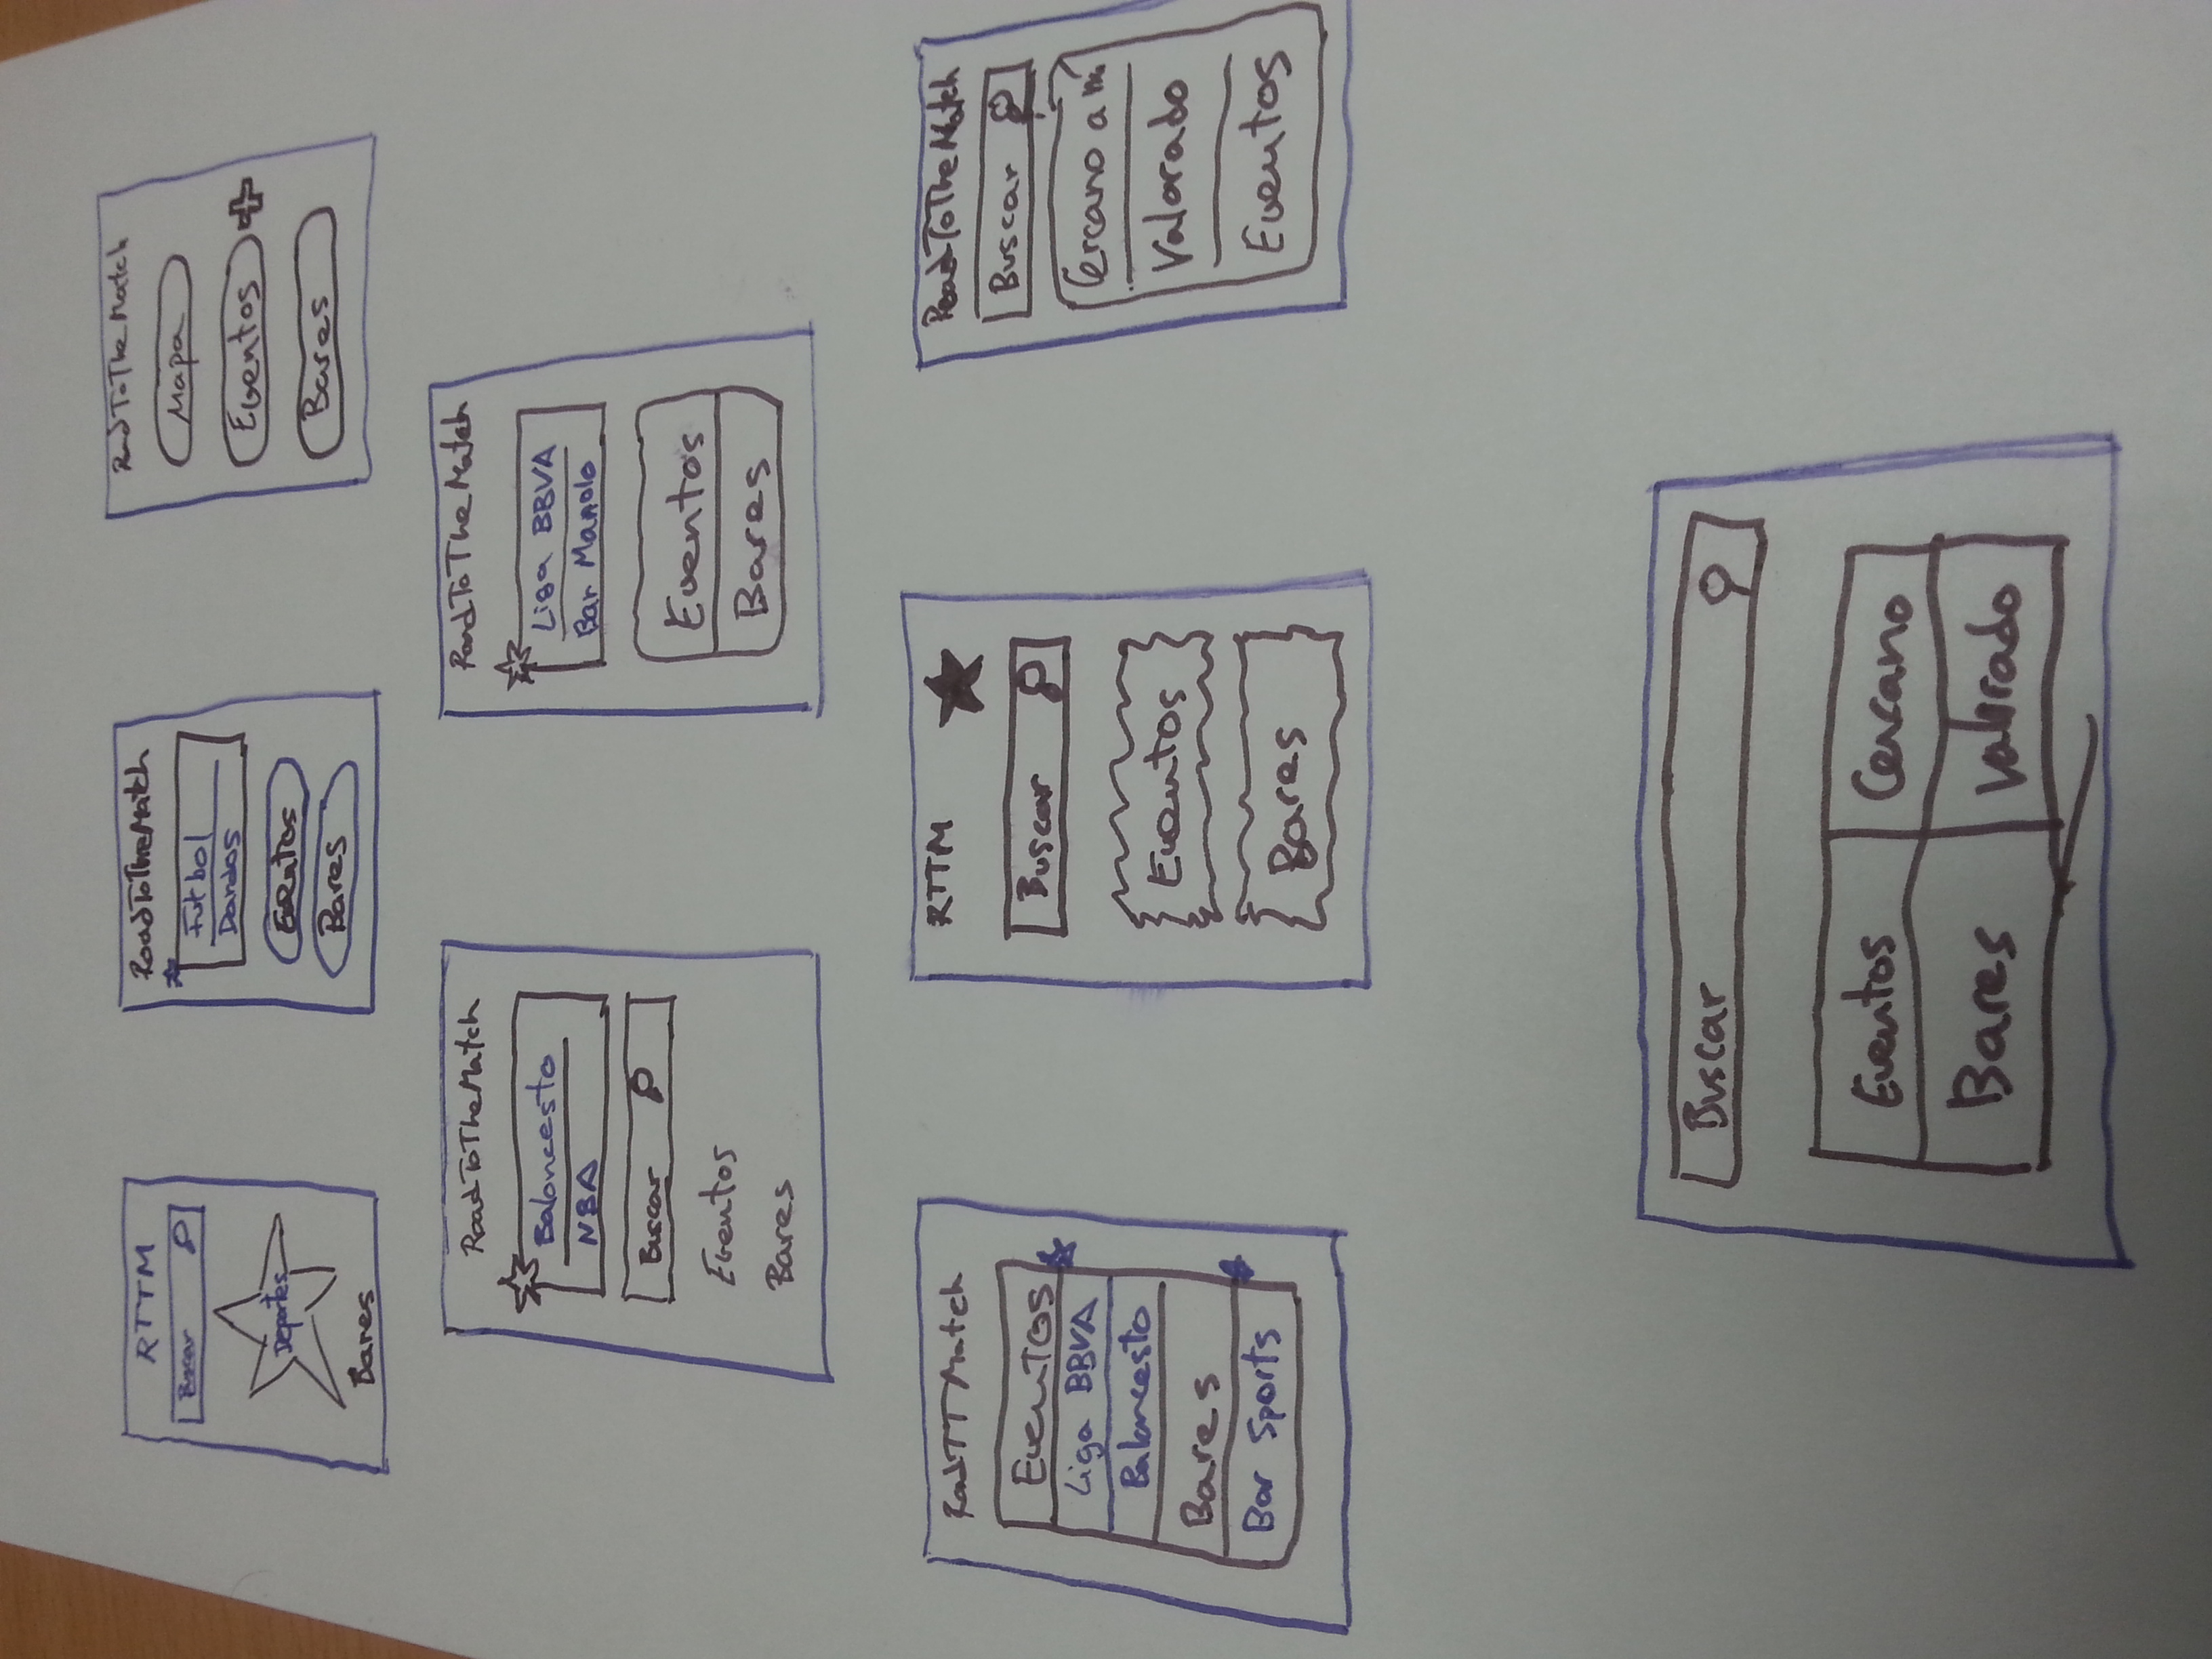 RTTM
Buscar
Deportes
Bares
RoadToTheMatch
Futbol
Dardos
Eventos
Bares
RoadToTheMatch
Mapa
Eventos
Bares
RoadToTheMatch
Baloncesto
NBA
Buscar
Eventos
Bares
RoadToTheMatch
Liga BBVA
Bar Manolo
Eventos
Bares
RoadTTMatch
Eventos
Liga BBVA
Baloncesto
Bares
Bar Sports
RTTM
Buscar
Eventos
Bares
RoadToTheMatch
Buscar
Cercano a mi
Valorado
Eventos
Buscar
Eventos Cercano
Bares Valorado